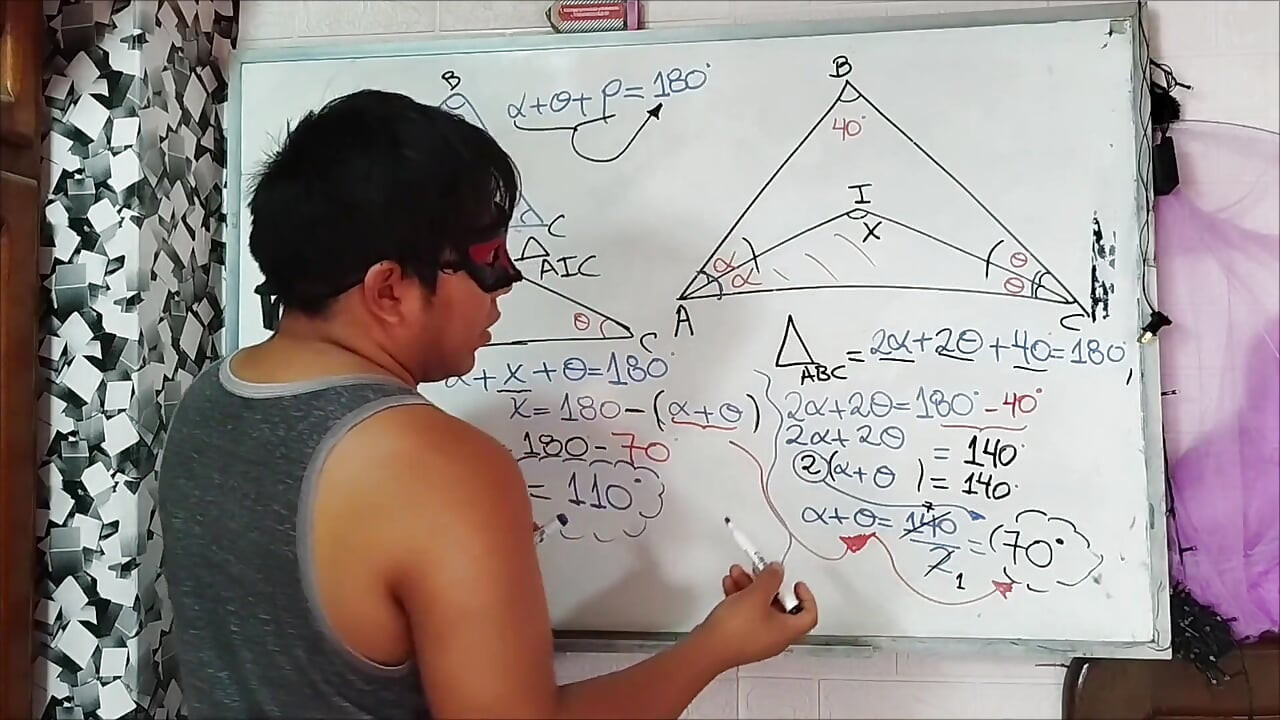 B
α+θ+ρ=180°
C
△AIC
θ
C
α+x+θ=180°
x=180-(α+θ)
180-70
=110°
B
40°
I
X
α
α
θ
θ
A
C
△ABC = 2α+2θ+40=180°
2α+2θ=180°-40°
2α+2θ = 140°
2(α+θ)=140°
α+θ=140/2=70°
7
1